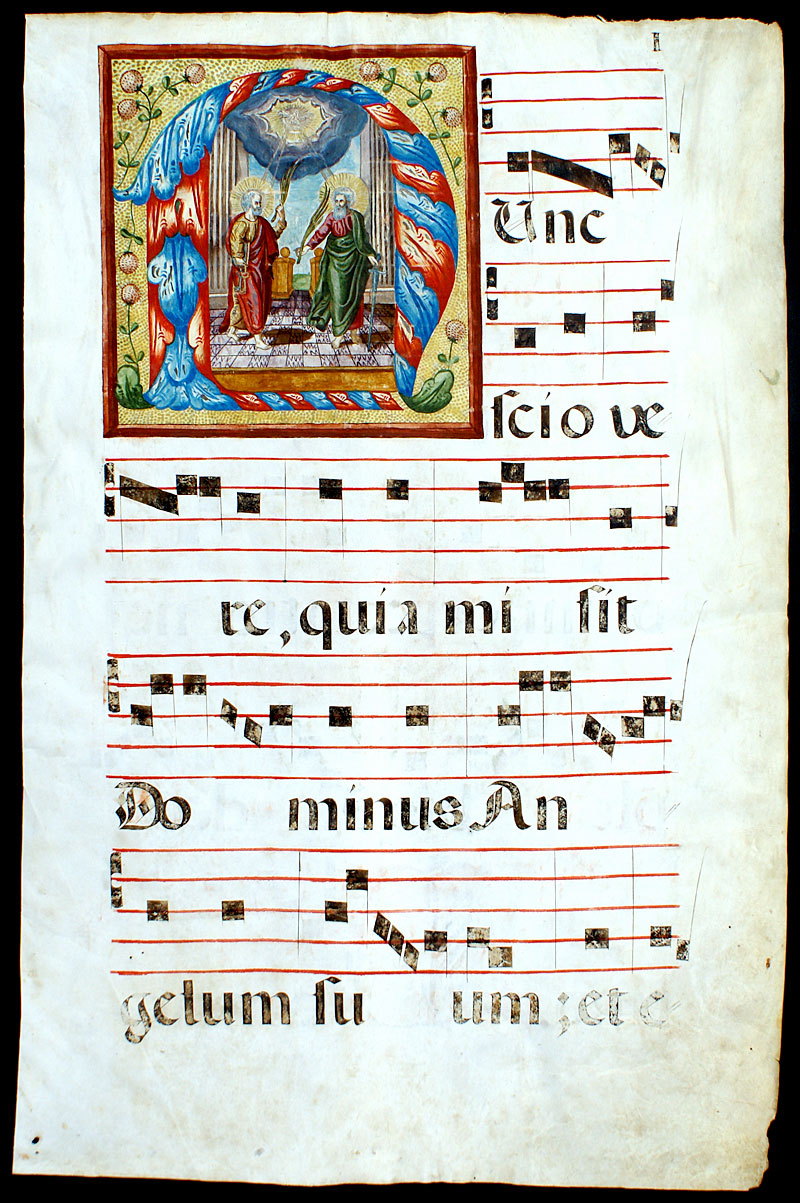 I
NUnc
ſcio ve
re, quia mi ſit
Do minus An
gelum ſu um; et e